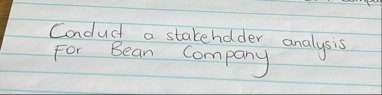 Conduct a stakeholder analysis
For Bean Company